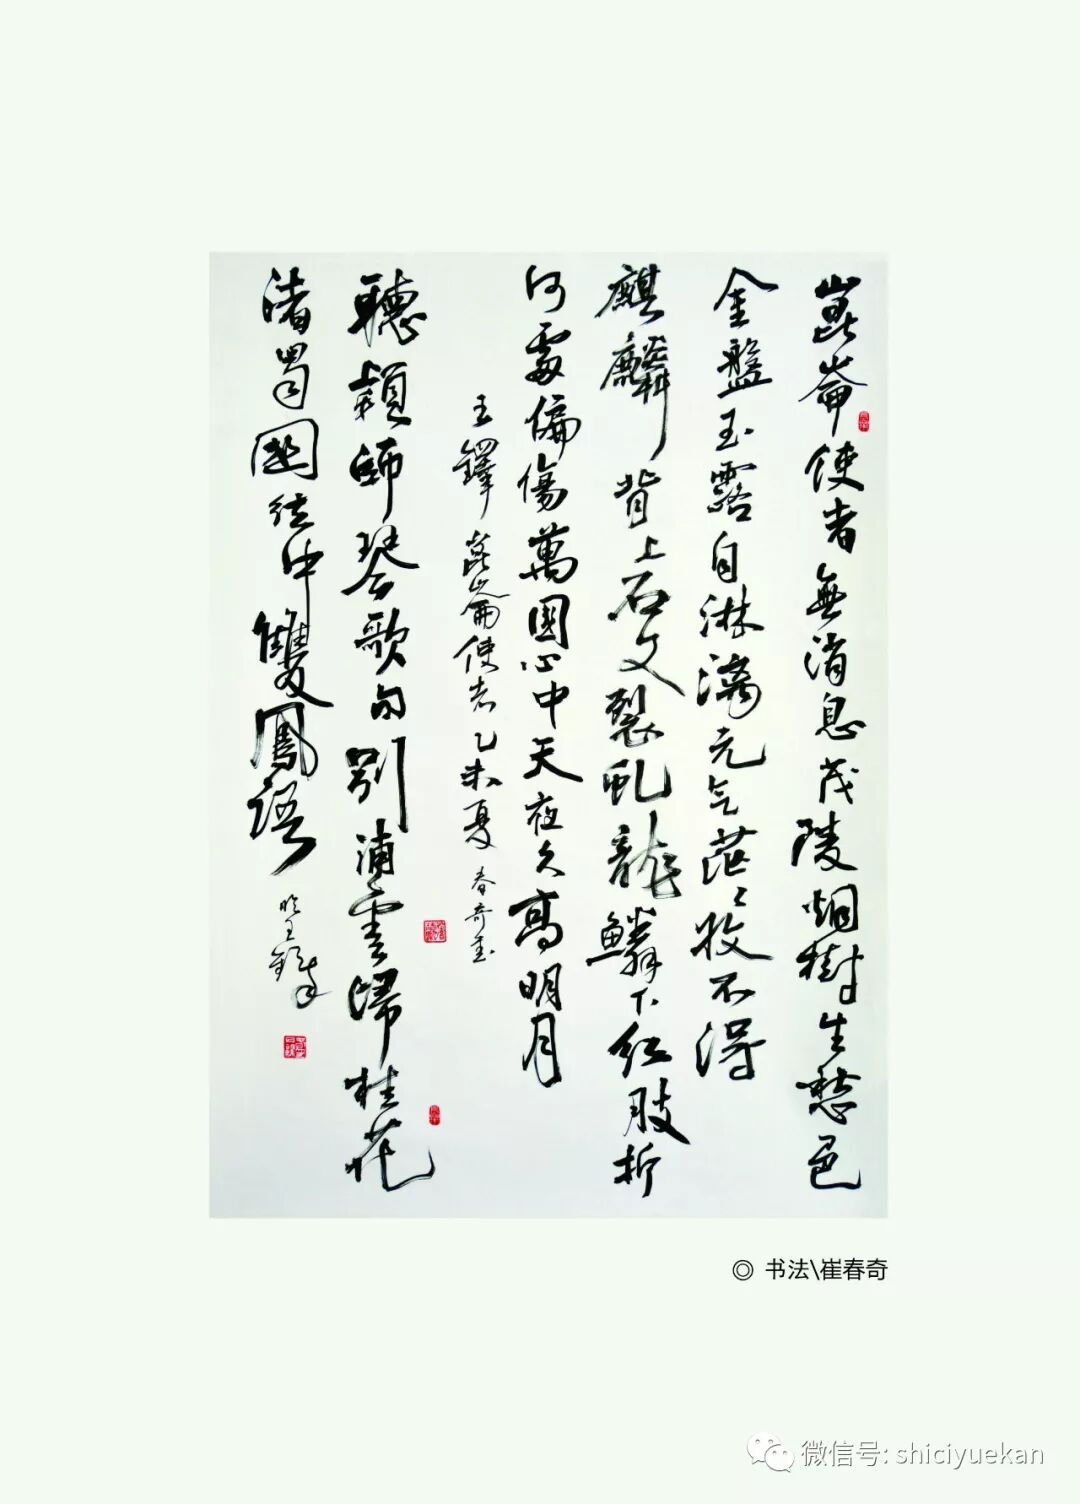 崑崙使者無消息茂陵烟樹生愁色
金盤玉露自淋漓元气茫々收不得
麒麟背上石文裂虬龍鱗下红肢折
何處偏傷萬國心中天夜久高明月
王鐸崑崙使者乙未夏春奇書
聽穎師琴歌句别浦雲歸桂花
渚蜀國弦中雙鳳語
◎ 书法\崔春奇
微信号: shiciyuekan